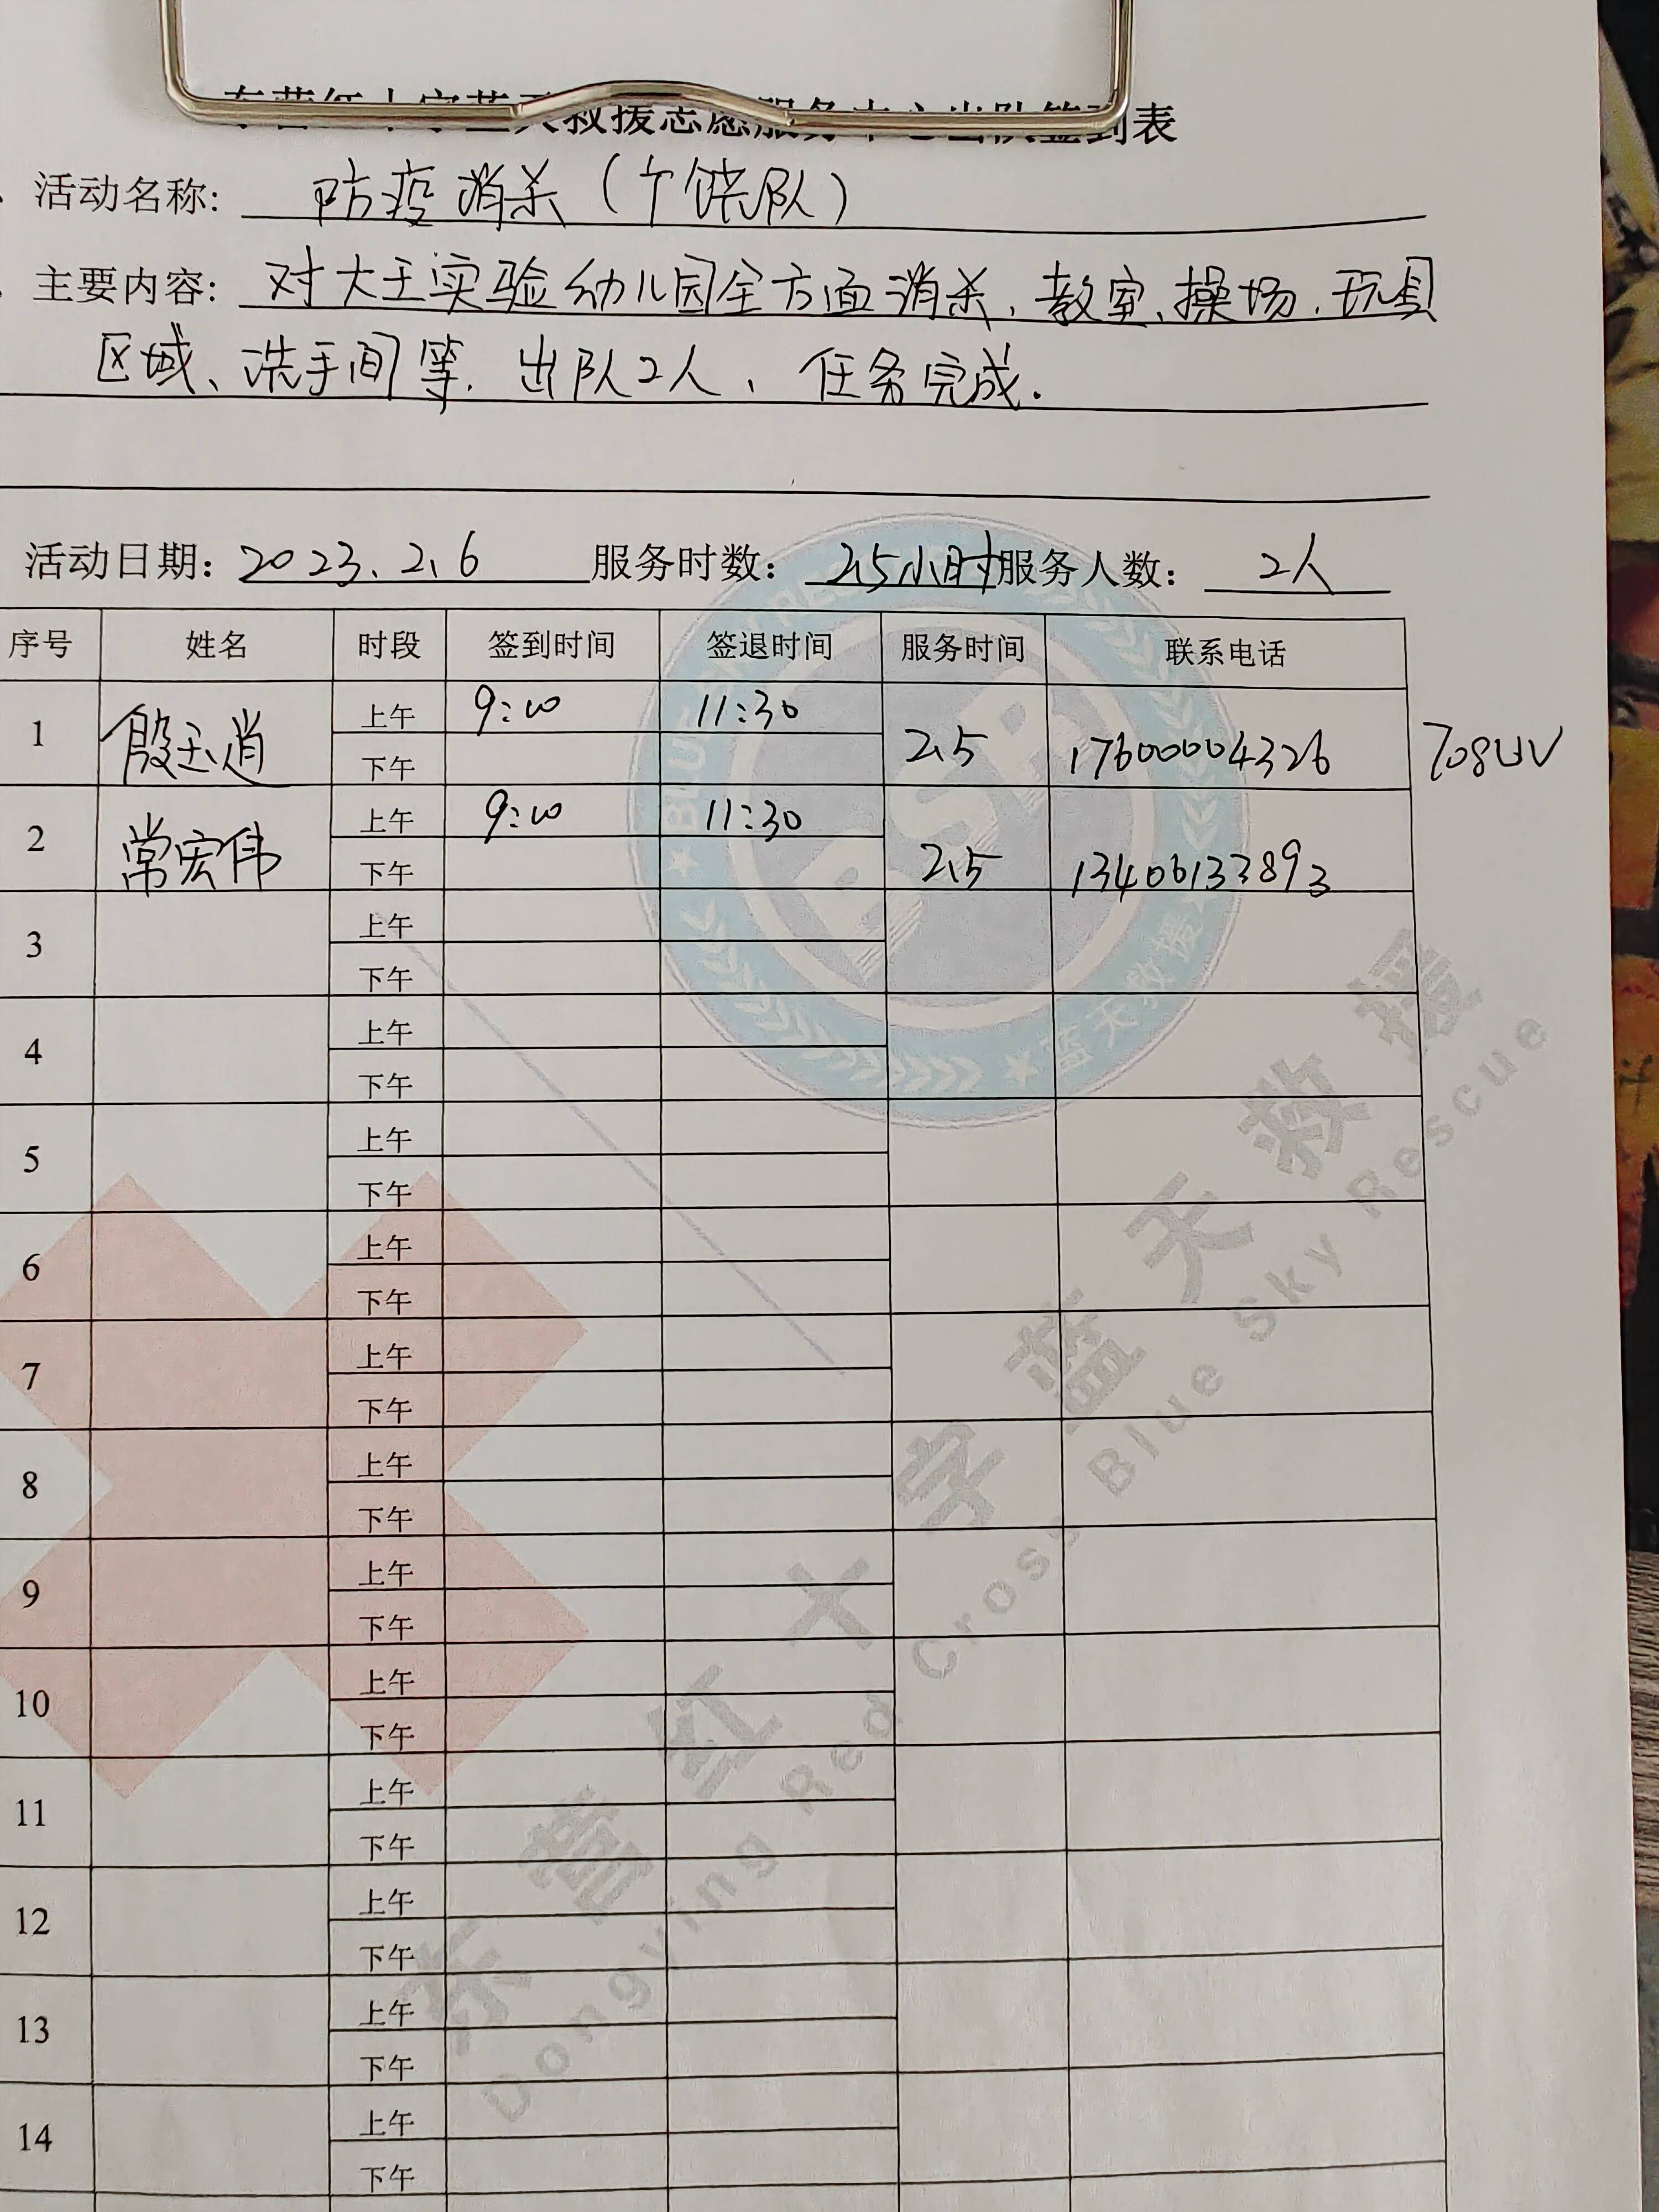 东营红十字蓝天救援志愿服务中心出队签到表
活动名称: 防疫消杀(广饶队)
主要内容: 对大王实验幼儿园全方面消杀、教室、操场、玩具
区域、洗手间等. 出队2人、任务完成.
活动日期: 2023.2.6 服务时数: 2.5小时 服务人数: 2人
序号 姓名 时段 签到时间 签退时间 服务时间 联系电话
1 殷玉肖 上午 9:10 11:30 2.5 17600004326 708UV
下午
2 常宏伟 上午 9:10 11:30 2.5 13406133893
下午
3 上午
下午
4 上午
下午
5 上午
下午
6 上午
下午
7 上午
下午
8 上午
下午
9 上午
下午
10 上午
下午
11 上午
下午
12 上午
下午
13 上午
下午
14 上午
下午
BSR
蓝天救援
东营红十字蓝天救援
Dongying Red Cross Blue Sky Rescue